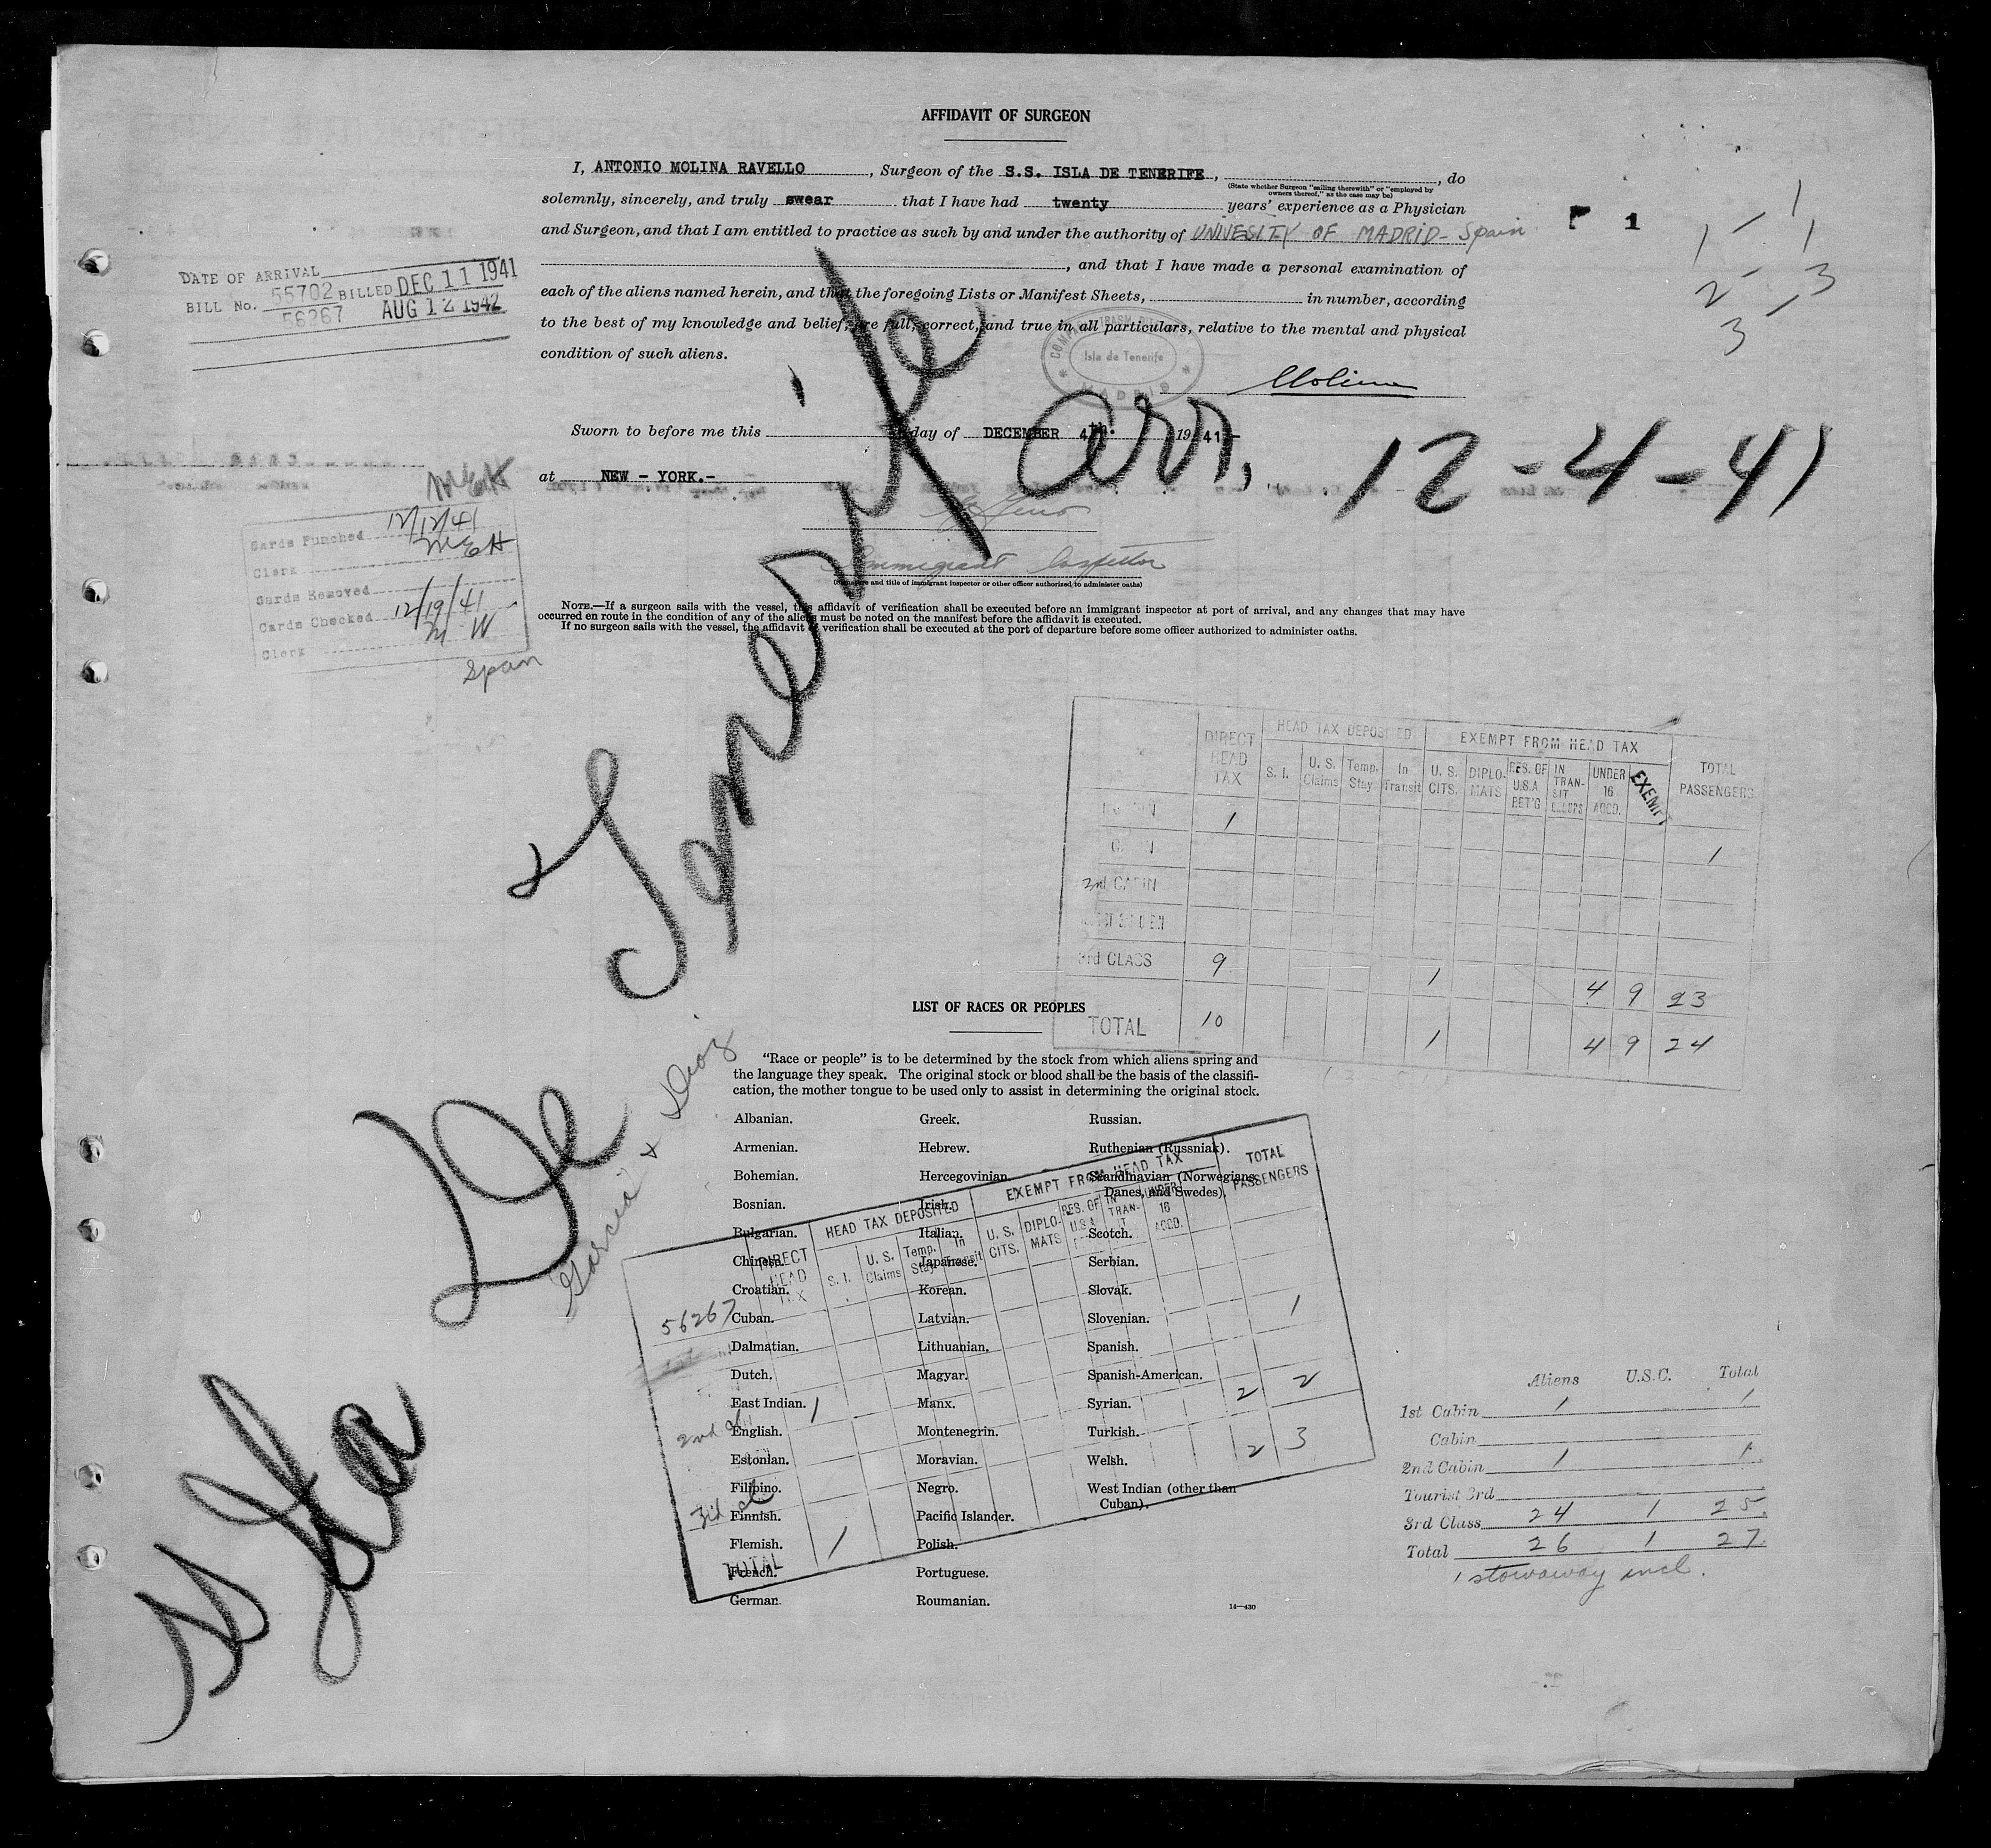 AFFIDAVIT OF SURGEON
I, ANTONIO MOLINA RAVELLO, Surgeon of the S.S. ISLA DE TENERIFE, , do
(State whether Surgeon "sailing therewith" or "employed by owners thereof," as the case may be)
solemnly, sincerely, and truly swear that I have had twenty years' experience as a Physician
and Surgeon, and that I am entitled to practice as such by and under the authority of UNIVESITY OF MADRID - Spain
, and that I have made a personal examination of
each of the aliens named herein, and that the foregoing Lists or Manifest Sheets, in number, according
to the best of my knowledge and belief, are full, correct, and true in all particulars, relative to the mental and physical
condition of such aliens.
1
1 - 1
1
2 - 3
3 -
DATE OF ARRIVAL
BILL No. 55702 BILLED DEC 11 1941
56267 AUG 12 1942
Isla de Tenerife
MADRID
Molina
Sworn to before me this day of DECEMBER 4th. 1941-
at NEW - YORK.-
Immigrant Inspector
(Signature and title of immigrant inspector or other officer authorized to administer oaths)
arr, 12-4-41
MEH
Cards Punched 12/12/41
Clerk MEH
Cards Removed
Cards Checked 12/19/41
Clerk M W
Span
NOTE.—If a surgeon sails with the vessel, this affidavit of verification shall be executed before an immigrant inspector at port of arrival, and any changes that may have
occurred en route in the condition of any of the aliens must be noted on the manifest before the affidavit is executed.
If no surgeon sails with the vessel, the affidavit of verification shall be executed at the port of departure before some officer authorized to administer oaths.
SS Isla De Tenerife
Garcia & Diaz
DIRECT HEAD TAX
HEAD TAX DEPOSITED
EXEMPT FROM HEAD TAX
TOTAL PASSENGERS
S. I. U. S. Claims Temp. Stay In Transit U. S. CITS. DIPLOMATS RES. OF U.S.A. RET'G IN TRANSIT UNDER 16 ACCD. EXEMPT
1 1
2nd CABIN
3rd CLASS 9 1 4 9 23
TOTAL 10 1 4 9 24
LIST OF RACES OR PEOPLES
"Race or people" is to be determined by the stock from which aliens spring and
the language they speak. The original stock or blood shall be the basis of the classifi-
cation, the mother tongue to be used only to assist in determining the original stock.
Albanian.
Armenian.
Bohemian.
Bosnian.
Bulgarian.
Chinese.
Croatian.
Cuban.
Dalmatian.
Dutch.
East Indian.
English.
Estonian.
Filipino.
Finnish.
Flemish.
French.
German.
Greek.
Hebrew.
Hercegovinian.
Irish.
Italian.
Japanese.
Korean.
Latvian.
Lithuanian.
Magyar.
Manx.
Montenegrin.
Moravian.
Negro.
Pacific Islander.
Polish.
Portuguese.
Roumanian.
Russian.
Ruthenian (Russniak).
Scandinavian (Norwegians,
Danes, and Swedes).
Scotch.
Serbian.
Slovak.
Slovenian.
Spanish.
Spanish-American.
Syrian.
Turkish.
Welsh.
West Indian (other than
Cuban).
14—430
DIRECT HEAD TAX
HEAD TAX DEPOSITED
EXEMPT FROM HEAD TAX
TOTAL PASSENGERS
S. I. U. S. Claims Temp. Stay In Transit U. S. CITS. DIPLOMATS RES. OF U.S.A. IN TRANSIT UNDER 16 ACCD.
56267 1
2nd cl 1 2 2
3rd cl
TOTAL 1 2 3
Aliens U.S.C. Total
1st Cabin 1 1
Cabin
2nd Cabin 1 1
Tourist 3rd
3rd Class 24 1 25
Total 26 1 27
1 stowaway incl.